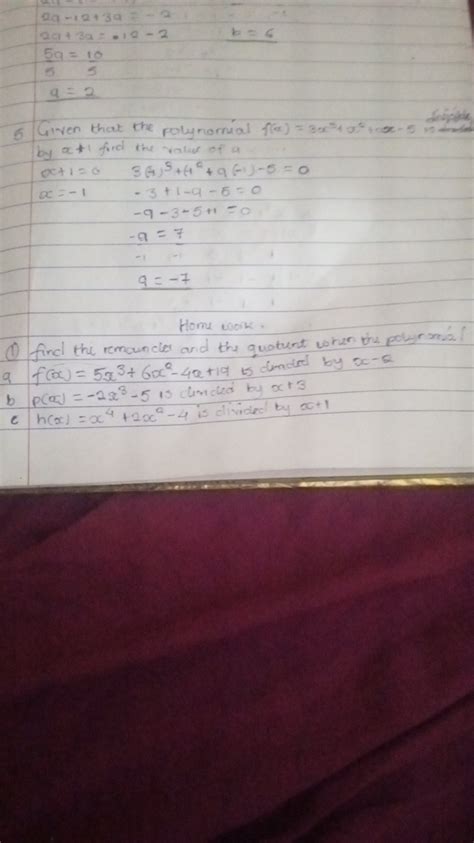 2a - 12 + 3a = -2
2a + 3a = 12 - 2 b = 6
5a = 10
5 5
a = 2
5 Given that the polynomial f(x) = 3x³ + x² + ax - 5 is divisible
by x + 1 find the value of a
x + 1 = 0 3(-1)³ + (-1)² + a(-1) - 5 = 0
x = -1 -3 + 1 - a - 5 = 0
-a - 3 - 5 + 1 = 0
-a = 7
-1 -1
a = -7
Home work.
① find the remainder and the quotient when the polynomial
a f(x) = 5x³ + 6x² - 4x + 19 is divided by x - 2
b p(x) = -2x³ - 5 is divided by x + 3
c h(x) = x⁴ + 2x² - 4 is divided by x + 1